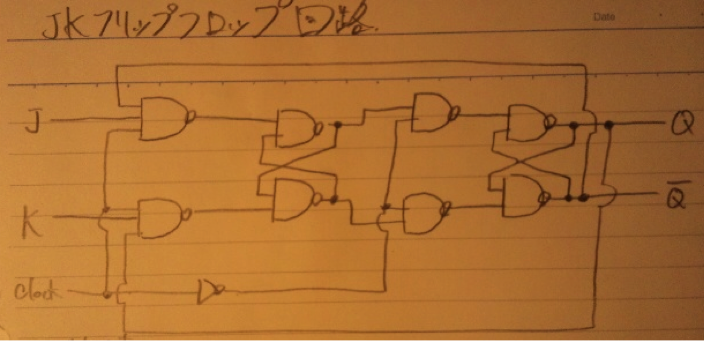 JKフリップフロップ回路.
Date
J
Q
K
Q̅
Clock